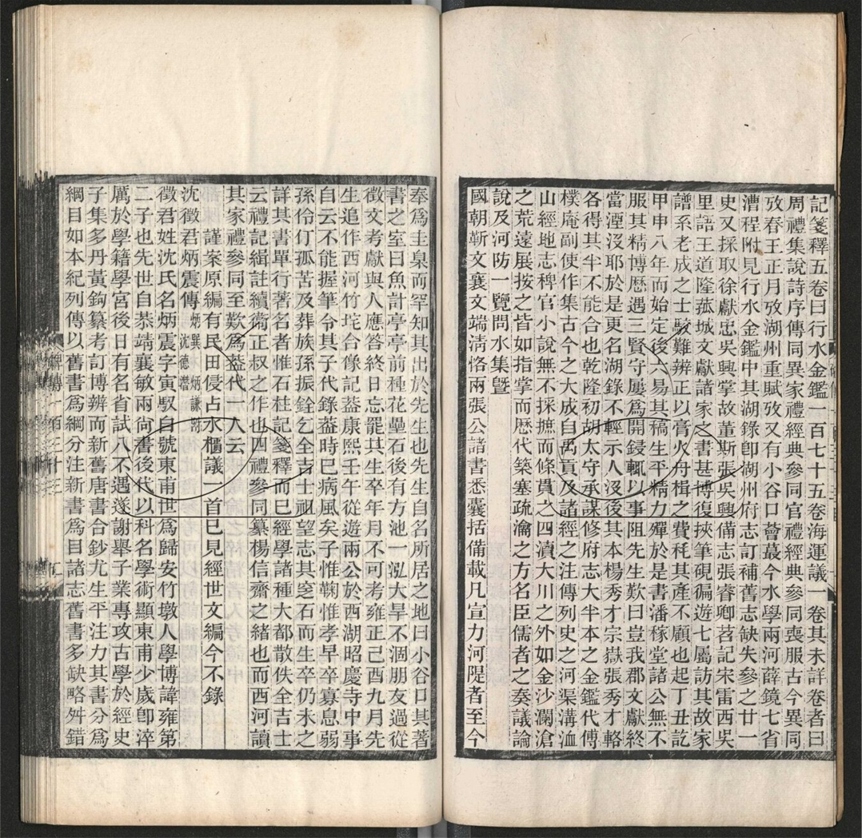 記箋釋五卷曰行水金鑑一百七十五卷海運議一卷其未詳卷者曰
周禮集說詩序傳同異家禮經典參同官禮經典參同喪服古今異同
攷春王正月攷湖州重賦攷又有小谷口薈蕞今水學兩河薛鏡七省
漕程附見行水金鑑中其湖錄卽湖州府志訂補舊志缺失參之廿一
史又採取徐獻忠吳興掌故董斯張吳興備志張睿卿苕記宋雷西吳
里語王道隆菰城文獻諸家之書甚博復挾筆硯徧遊七屬訪其故家
譜系老成之士駮難辨正以膏火舟楫之費秏其產不願也起丁丑訖
甲申八年而始定後六易其稿生平精力殫於是書潘稼堂諸公無不
服其精博歷遇三賢守屢爲開鋟輒以事阻先生歎曰豈我郡文獻終
當湮沒耶於是更名湖錄不輕示人沒後其本楊秀才宗嶽張秀才輅
各得其半不能合也乾隆初胡太守承謀修府志大半本之金鑑代傅
樸庵副使作集古今之大成自禹貢及諸經之注傳列史之河渠溝洫
山經地志稗官小說無不採摭而條貫之四瀆大川之外如金沙瀾滄
之荒遠展按之皆如指掌而歷代築塞疏瀹之方名臣儒者之奏議論
說及河防一覽問水集曁
國朝靳文襄文端清恪兩張公諸書悉囊括備載凡宣力河隄者至今
奉爲圭臬而罕知其出於先生也先生自名所居之地曰小谷口其著
書之室曰魚計亭亭前種花壘石後有方池一泓大旱不涸朋友過從
徵文考獻與人應答終日忘罷其生卒年月不可考雍正己酉九月先
生追作西河竹垞合像記蓋康熙壬午從遊兩公於西湖昭慶寺中事
自云不能握筆令其子代錄葢時巳病風矣子惟鞠惟孝早卒寡息弱
孫伶仃孤苦及葬族孫振銓乞全吉士祖望志其窆石而生卒仍未之
詳其書單行著名者惟石柱記箋釋而巳經學諸種大都散佚全吉士
云禮記緝註續衛正叔之作也四禮參同纂楊信齋之緒也而西河讀
其家禮參同至歎爲葢代一人云
謹案原編有民田侵占水櫃議一首巳見經世文編今不錄
沈徵君炳震傳 炳巽 炳謙 沈德潛
徵君姓沈氏名炳震字寅馭自號東甫世爲歸安竹墩人學博諱雍第
二子也先世自恭靖襄敏兩尙書後代以科名學術顯東甫少歲卽淬
厲於學籍學宮後日有名省試八不遇遂謝舉子業專攻古學於經史
子集多丹黃鉤纂考訂博辨而新舊唐書合鈔尤生平注力其書分爲
綱目如本紀列傳以舊書爲綱分注新書爲目諸志舊書多缺略舛錯